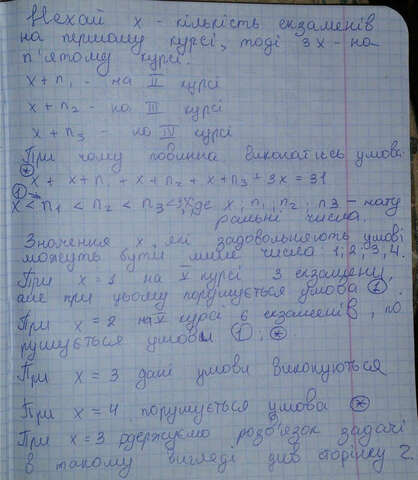 Нехай x - кількість екзаменів
на першому курсі, тоді 3x - на
п'ятому курсі.
x + n₁ - на II курсі
x + n₂ - на III курсі
x + n₃ - на IV курсі
При чому повинна виконатись умова:
⊛ x + x + n₁ + x + n₂ + x + n₃ + 3x = 31
① x < n₁ < n₂ < n₃ < 3x, де x; n₁; n₂; n3 - нату
ральні числа.
Значення x, які задовольняють умові
можуть бути лише число 1; 2; 3, 4.
При x = 1 на V курсі 3 екзамени,
але при цьому порушується умова ⊛.
При x = 2 на V курсі 6 екзаменів, по
рушується умови ①; ⊛
При x = 3 дані умови виконуються
При x = 4 порушується умова ⊛
При x = 3 одержуємо розв'язок задачі
в такому вигляді див сторінку 2.